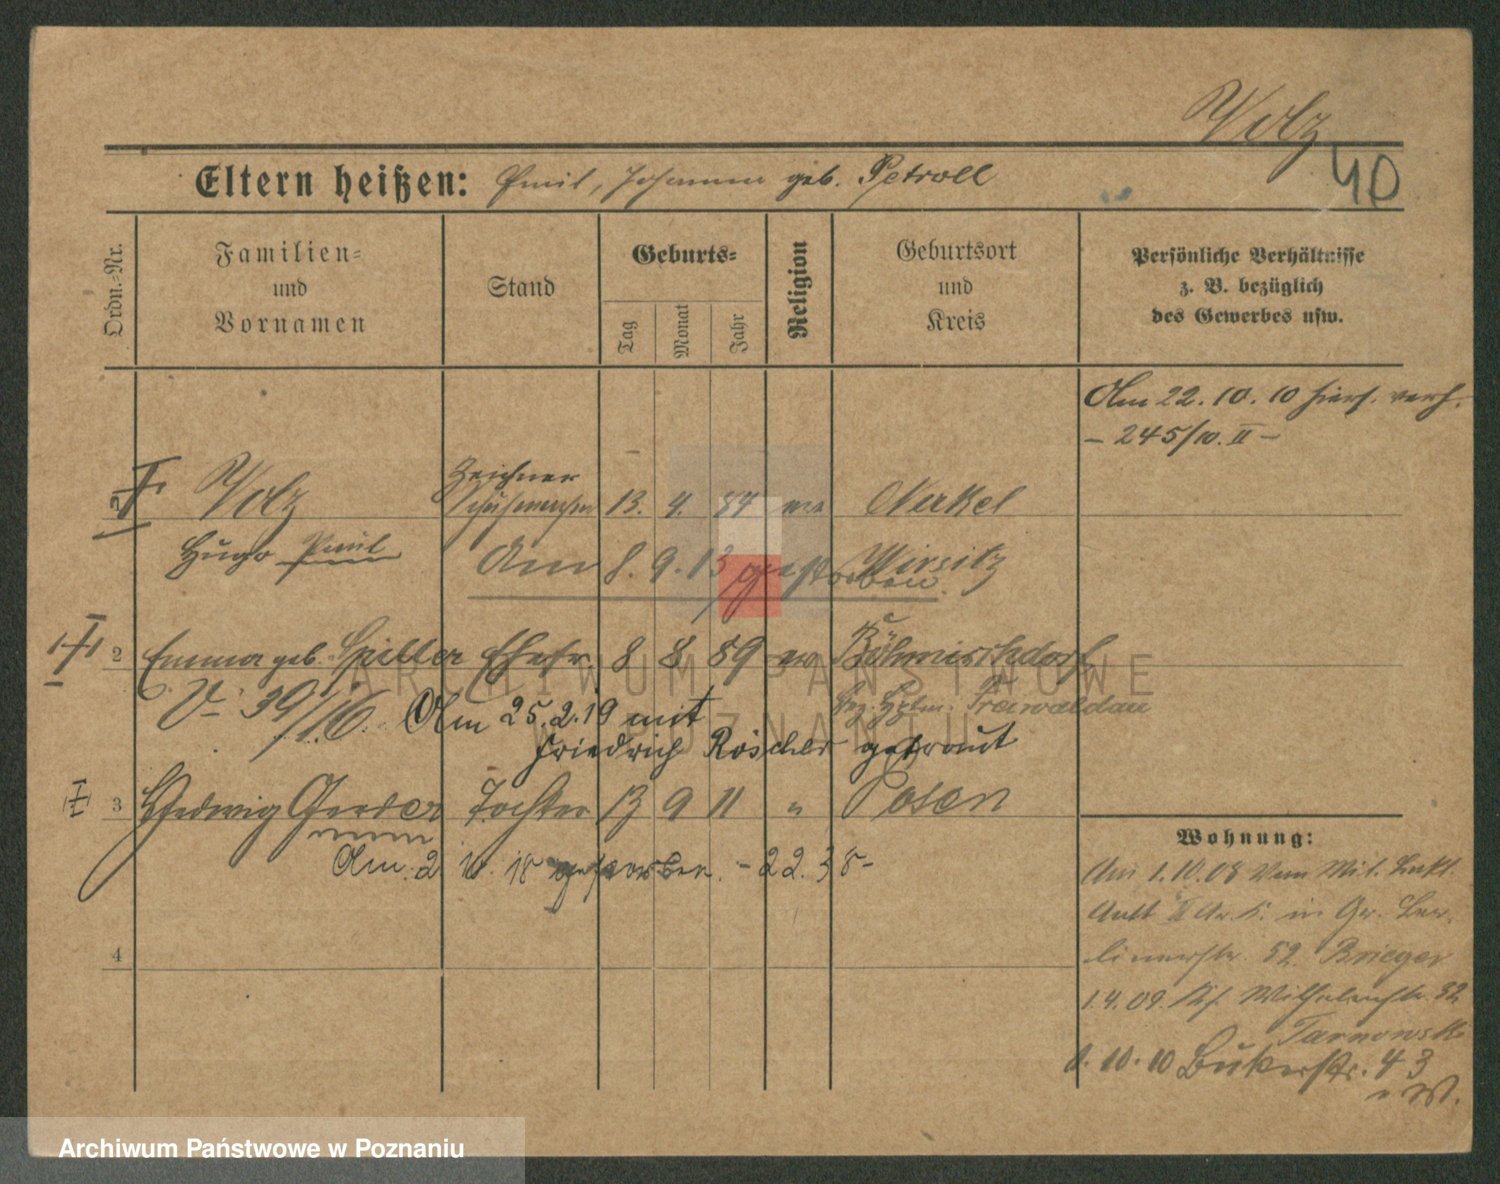 Volz
40
Eltern heißen: Emil, Johanna geb. Petroll
Ordn.-Nr.
Familien-
und
Vornamen
Stand
Geburts-
Tag
Monat
Jahr
Religion
Geburtsort
und
Kreis
Persönliche Verhältnisse
z. B. bezüglich
des Gewerbes usw.
Am 22. 10. 10 hiers. verh.
- 245/10. II -
Zeichner
Volz Schutzmann 13. 4. 87 Nerkel
Hugo Emil
Am 8. 9. 13 gestorben.
Wirsitz
2 Emma geb. Spiller Ehefr. 8 8 89 ev Böhmischdorf
Bez. Hptm. Freiwaldau
V: 39/16. Am 25.2.19 mit
Friedrich Röscher getraut
3 Hedwig Gerda Tochter 13 9 11 " Posen
Am 2 10. 18 gestorben. - 22. 38 -
4
Wohnung:
Am 1.10.08 vom Mil. Bekl.
Amt II Ar. K. in Gr. Ber-
linerstr. 52. Brieger
1.4.09. Wilhelmstr. 32
Tarnowski
1. 10. 10 Bukerstr. 43
ARCHIWUM PAŃSTWOWE
W POZNANIU
Archiwum Państwowe w Poznaniu